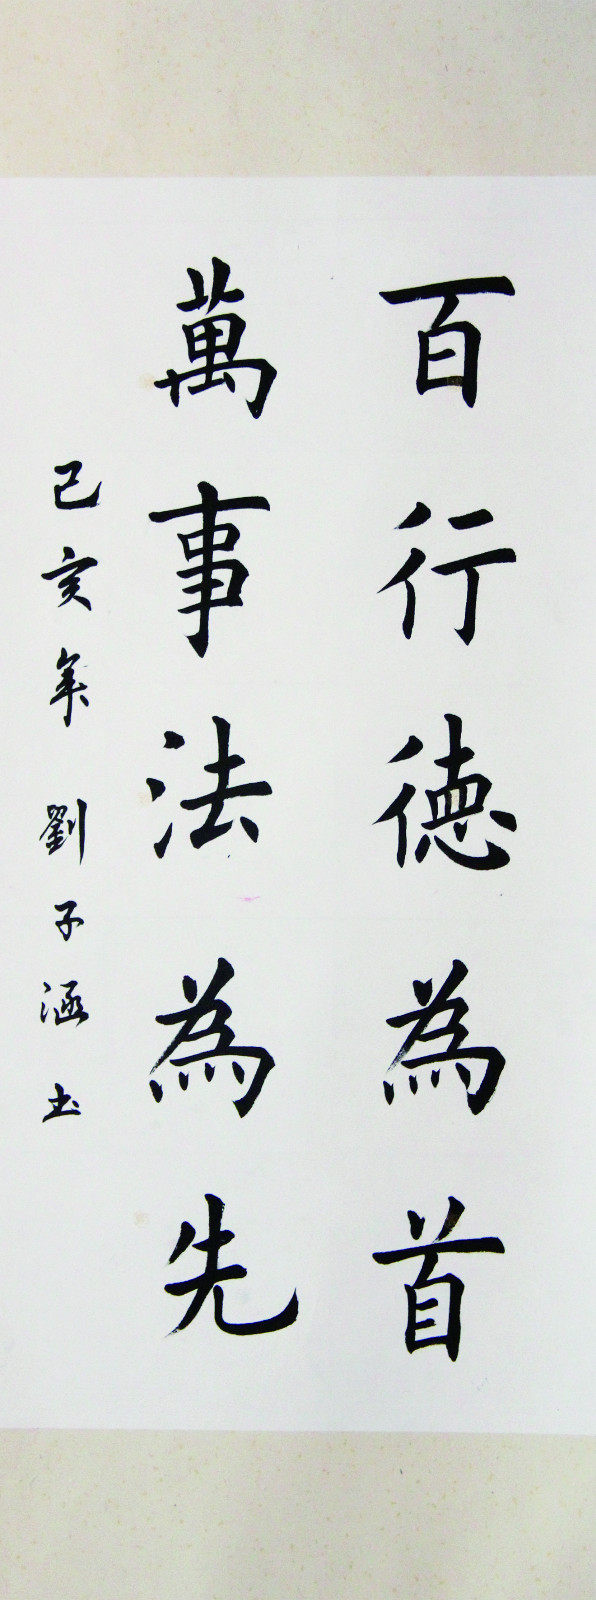 百行德為首
萬事法為先
己亥年 劉子涵书